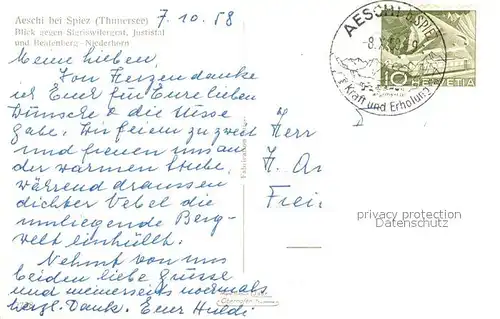 Aeschi bei Spiez (Thunersee)
Blick gegen Sigriswilergrat, Justistal
und Beatenberg-Niederhorn
7.10.58
Meine Lieben,
Von Herzen danke
ich Euch für Eure lieben
Wünsche & die süsse
Gabe. Wir feiern zu zweit
und freuen uns an
der warmen Stube,
während draussen
dichter Nebel die
umliegende Berg-
welt einhüllt.
Nehmt von uns
beiden liebe Grüsse
und meinerseits nochmals
herzl. Dank. Eure Huldi
AESCHI b. SPIEZ
Kraft und Erholung
10 HELVETIA
Herr
H. An
Frei
privacy protection
Datenschutz